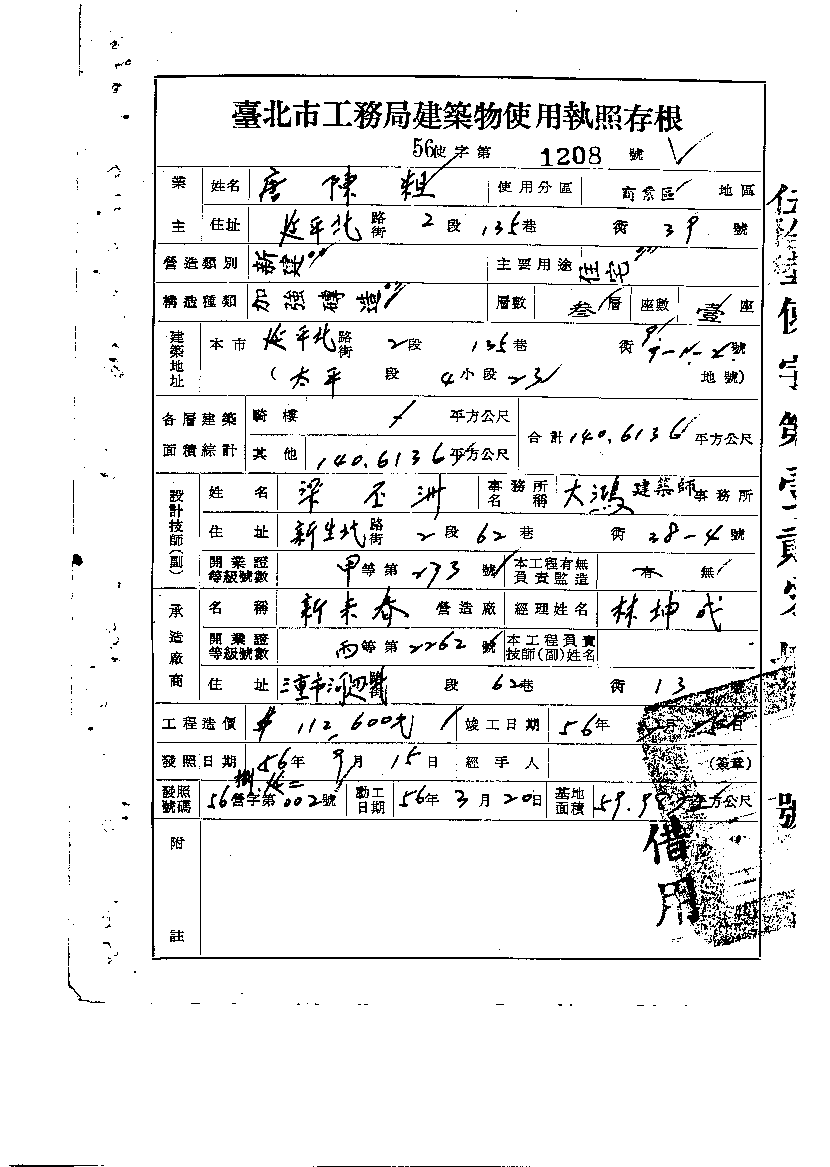 臺北市工務局建築物使用執照存根
56使字第 1208 號
業主 姓名 唐陳 使用分區 商業區 地區
住址 延平北 路街 2 段 135 巷 街 39 號
營造類別 新建 主要用途 住宅
構造種類 加強磚造 層數 叁層 座數 壹座
建築地址 本市 延平北 路街 2 段 135 巷 街 號
( 太平 段 4 小段 地號)
各層建築面積綜計 騎樓 平方公尺 合計 140.6136 平方公尺
其他 140.6136 平方公尺
設計技師(副) 姓名 梁丕洲 事務所名稱 大鴻建築師事務所
住址 新生北 路街 2 段 62 巷 街 28-4 號
開業證等級號數 甲等第 273 號 本工程有無負責監造 有 無
承造廠商 名稱 新來春 營造廠 經理姓名 林坤成
開業證等級號數 丙等第 2262 號 本工程負責技師(副)姓名
住址 三重市河 段 62 巷 街 13 號
工程造價 $ 112,600元 竣工日期 56年 月 日
發照日期 56年 9月 15日 經手人 (簽章)
發照號碼 56營字第 002 號 動工日期 56年 3月 20日 基地面積 59.98 平方公尺
附註
借用
使字第壹貳 號